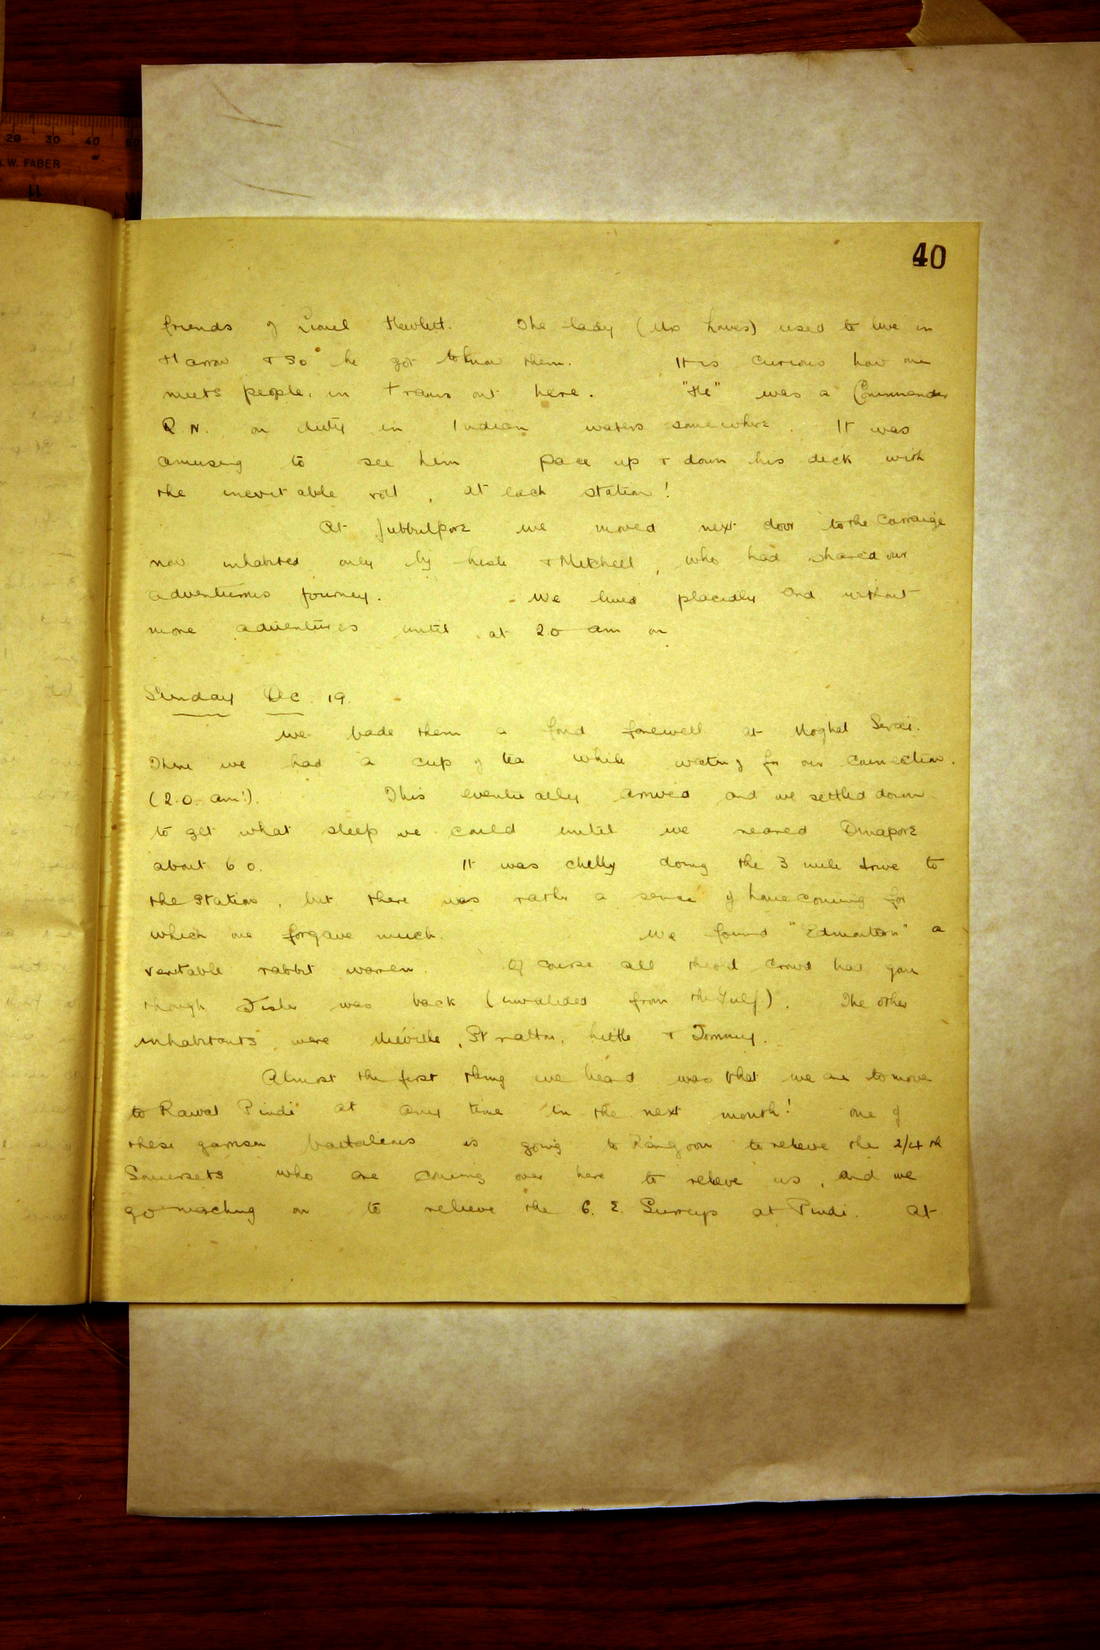 20 30 40
W. FABER
11
40
friends of Lionel Hewlett. The lady (Mrs) used to live in
Harrow & so he got to know them. It is curious how one
meets people, in trains out here. "He" was a Commander
R.N. on duty in Indian waters somewhere. It was
amusing to see him pace up & down his deck with
the inevitable roll, at each station!
At Jubbulpore we moved next door to the carraige
now inhabited only by & Mitchell, who had shared our
adventurous journey. - We lived placidly and without
more adventures until at 2.0 am on
Sunday Dec 19.
We bade them a fond farewell at Moghal Serai.
There we had a cup of tea while waiting for our connection.
(2.0. am!). This eventually arrived and we settled down
to get what sleep we could until we neared Dinapore
about 6 0. It was chilly doing the 3 mile drive to
the station, but there was rather a sense of home coming for
which one forgave much. We found "Edmonton" a
veritable rabbit warren. Of course all the old crowd had gone
though was back (invalided from the Gulf). The other
inhabitants were Miéville, Stratton, Little & Tommy.
Almost the first thing we heard was that we are to move
to Rawal Pindi at any time in the next month! One of
these garrison battalions is going to Rangoon to relieve the 2/4th
Somersets who are coming over here to relieve us, and we
go marching on to relieve the 6. E. Surreys at Pindi. At